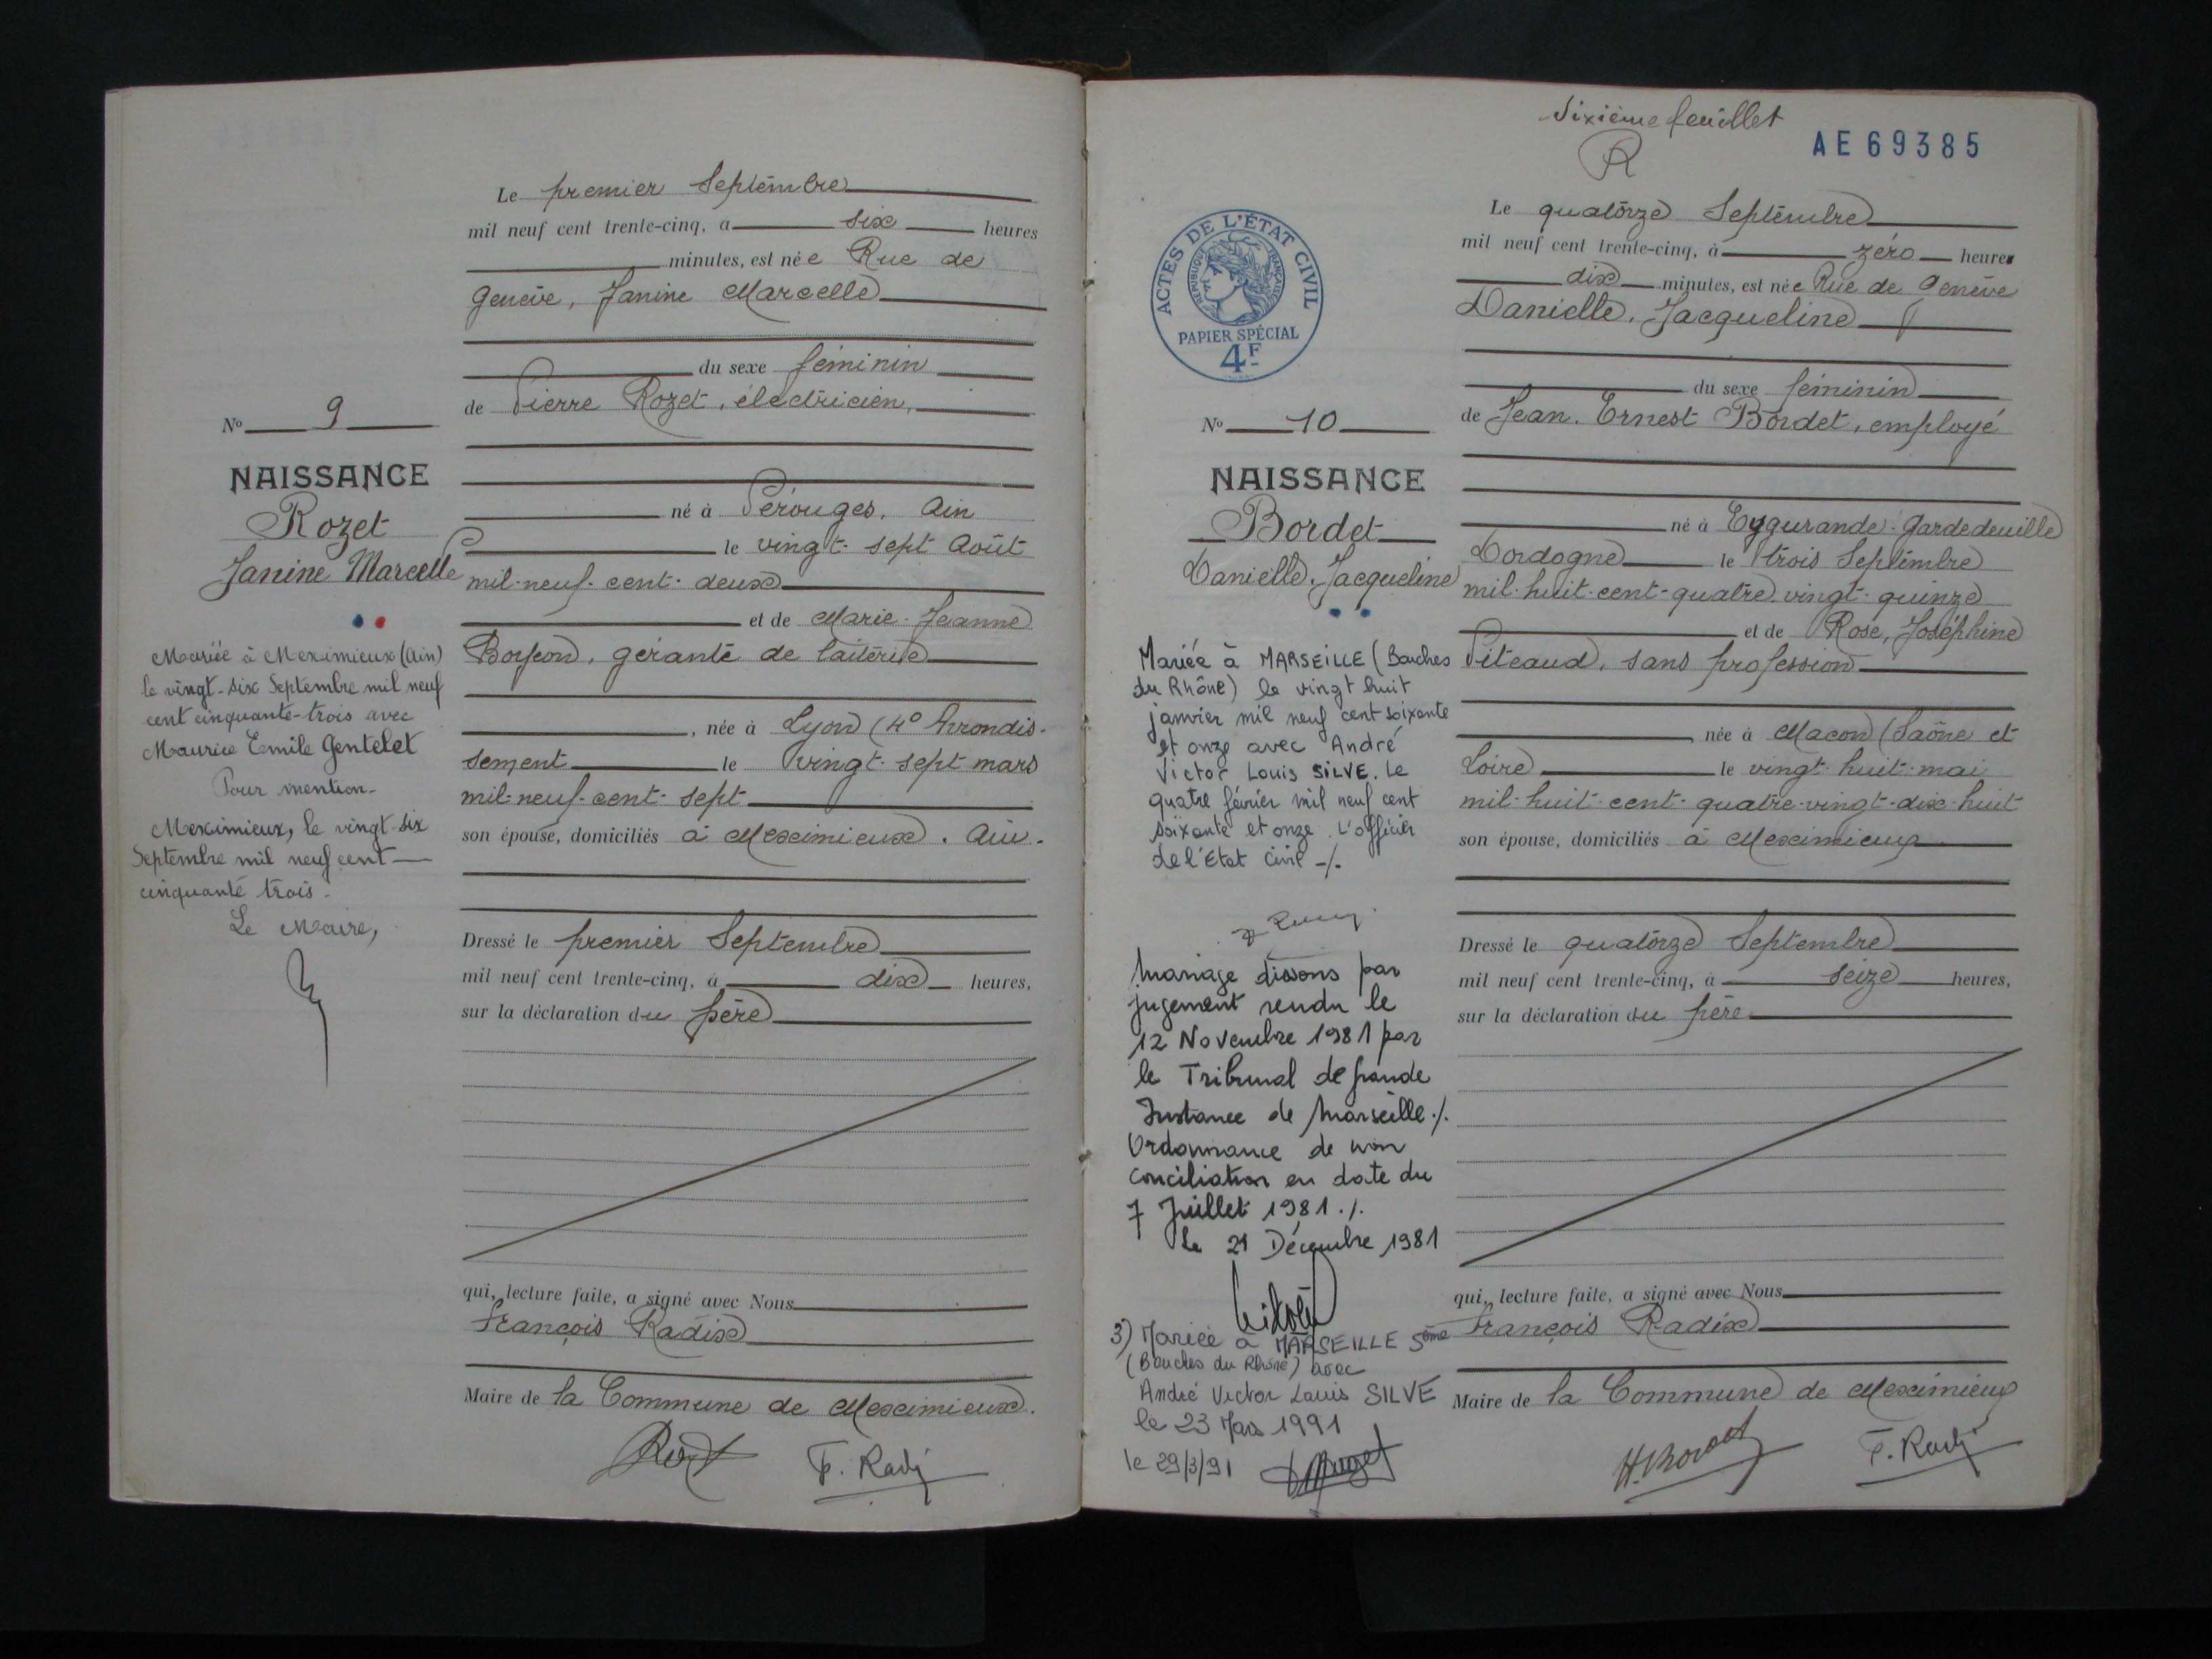 Le premier Septembre
mil neuf cent trente-cinq, à six heures
minutes, est née Rue de
Genève, Janine Marcelle
du sexe féminin
de Pierre Rozet, électricien,
né à Pérouges, Ain
le vingt-sept Août
mil-neuf-cent-deux
et de Marie-Jeanne
gérante de laiterie
, née à Lyon (4° Arrondis-
sement le vingt-sept mars
mil-neuf-cent-sept
son épouse, domiciliés à Meximieux. Ain.
Dressé le premier Septembre
mil neuf cent trente-cinq, à dix heures,
sur la déclaration du père
qui, lecture faite, a signé avec Nous
François Radix
Maire de la Commune de Meximieux.
F. Radix
No 9
NAISSANCE
Rozet
Janine Marcelle
Mariée à Meximieux (Ain)
le vingt-six Septembre mil neuf
cent cinquante-trois avec
Maurice Emile Gentelet
Pour mention-
Meximieux, le vingt-six
Septembre mil neuf cent
cinquante trois-
Le Maire,
Sixième feuillet
R
AE 69385
ACTES DE L'ÉTAT CIVIL
RÉPUBLIQUE FRANÇAISE
PAPIER SPÉCIAL
4F
Le quatorze Septembre
mil neuf cent trente-cinq, à zéro heures
dix minutes, est née Rue de Genève
Danielle, Jacqueline
du sexe féminin
de Jean. Ernest Bordet, employé
né à Eygurande-Gardedeuille
Dordogne le trois Septembre
mil-huit-cent-quatre-vingt-quinze
et de Rose, Joséphine
Piteaud, sans profession
née à Macon (Saône et
Loire le vingt-huit-mai
mil-huit-cent-quatre-vingt-dix-huit
son épouse, domiciliés à Meximieux
Dressé le quatorze Septembre
mil neuf cent trente-cinq, à seize heures,
sur la déclaration du père
qui, lecture faite, a signé avec Nous
François Radix
Maire de la Commune de Meximieux
H. Bordet
F. Radix
No 10
NAISSANCE
Bordet
Danielle, Jacqueline
Mariée à MARSEILLE (Bouches
du Rhône) le vingt huit
janvier mil neuf cent soixante
et onze avec André
Victor Louis SILVE. Le
quatre février mil neuf cent
soixante et onze. L'officier
de l'Etat civil -/.
Mariage dissous par
jugement rendu le
12 Novembre 1981 par
le Tribunal de grande
Instance de Marseille ./.
Ordonnance de non
conciliation en date du
7 Juillet 1981 ./.
Le 21 Décembre 1981
3) Mariée à MARSEILLE 5ème
(Bouches du Rhône) avec
André Victor Louis SILVE
le 23 Mars 1991
le 29/3/91